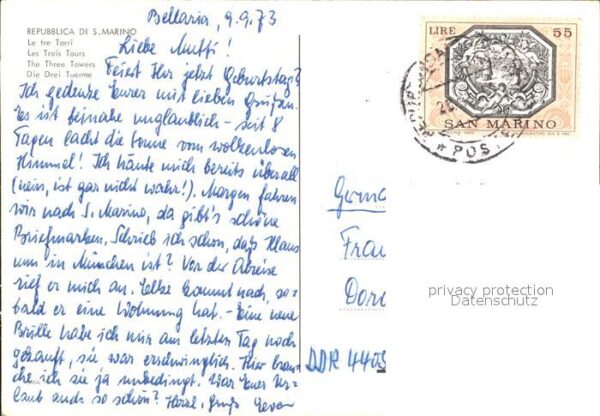 Bellaria, 9.9.73
REPUBBLICA DI S. MARINO
Le tre Torri
Les Trois Tours
The Three Towers
Die Drei Tuerme
Liebe Mutti!
Feiert Ihr jetzt Geburtstag?
Ich gedenke Eurer mit lieben Grüßen.
Es ist beinahe unglaublich - seit 8
Tagen lacht die Sonne vom wolkenlosen
Himmel! Ich häute mich bereits überall
(nein, ist gar nicht wahr!). Morgen fahren
wir nach S. Marino, da gibt's schöne
Briefmarken. Schrieb ich schon, daß Klaus
nun in München ist? Vor der Abreise
rief er mich an. Elke kommt nach, so-
bald er eine Wohnung hat. - Eine neue
Brille habe ich mir am letzten Tag noch
gekauft, sie war erschwinglich. Hier brau-
che ich sie ja unbedingt. War Euer Ur-
laub auch so schön? Herzl. Gruß
LIRE 55
SAN MARINO
POS
Frau
DDR 4405
privacy protection
Datenschutz